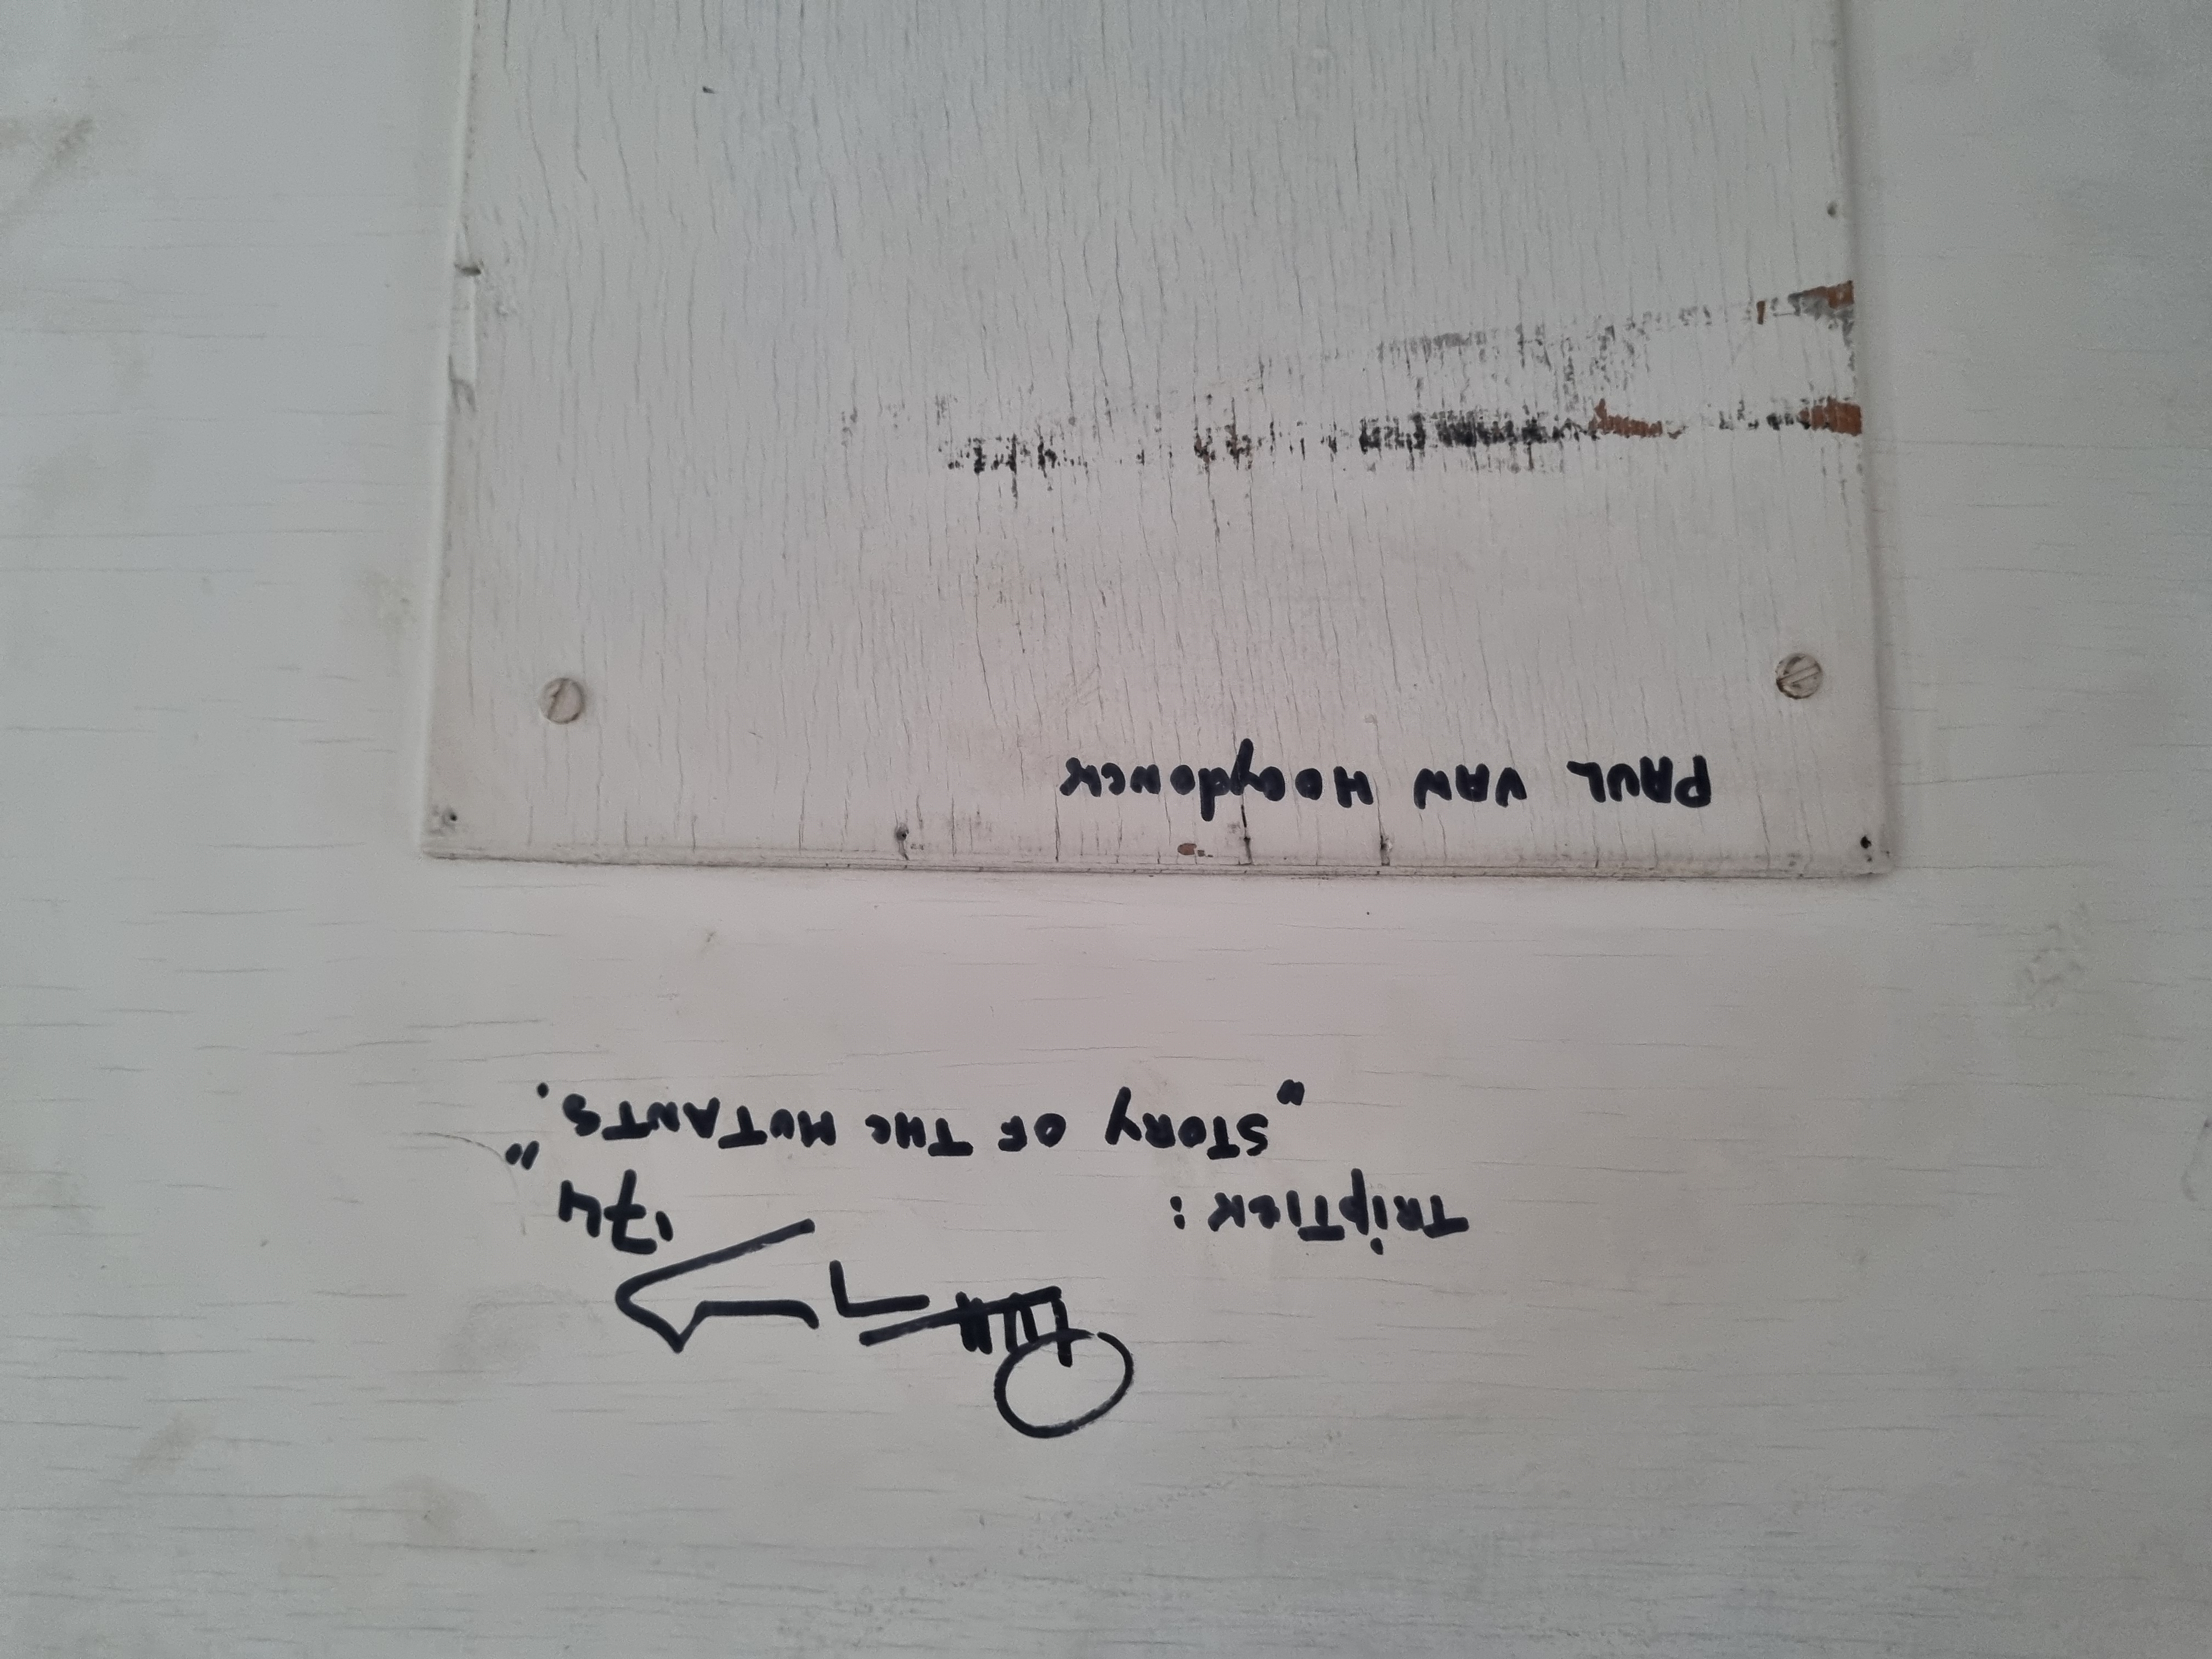 TRipTiEK: '74
„STORY OF THE MUTANTS.”
PAUL VAN HOEydoNCK